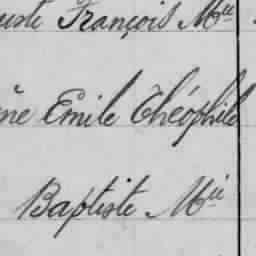 uste François Mie
ne Emile Théophile
Baptiste Mie